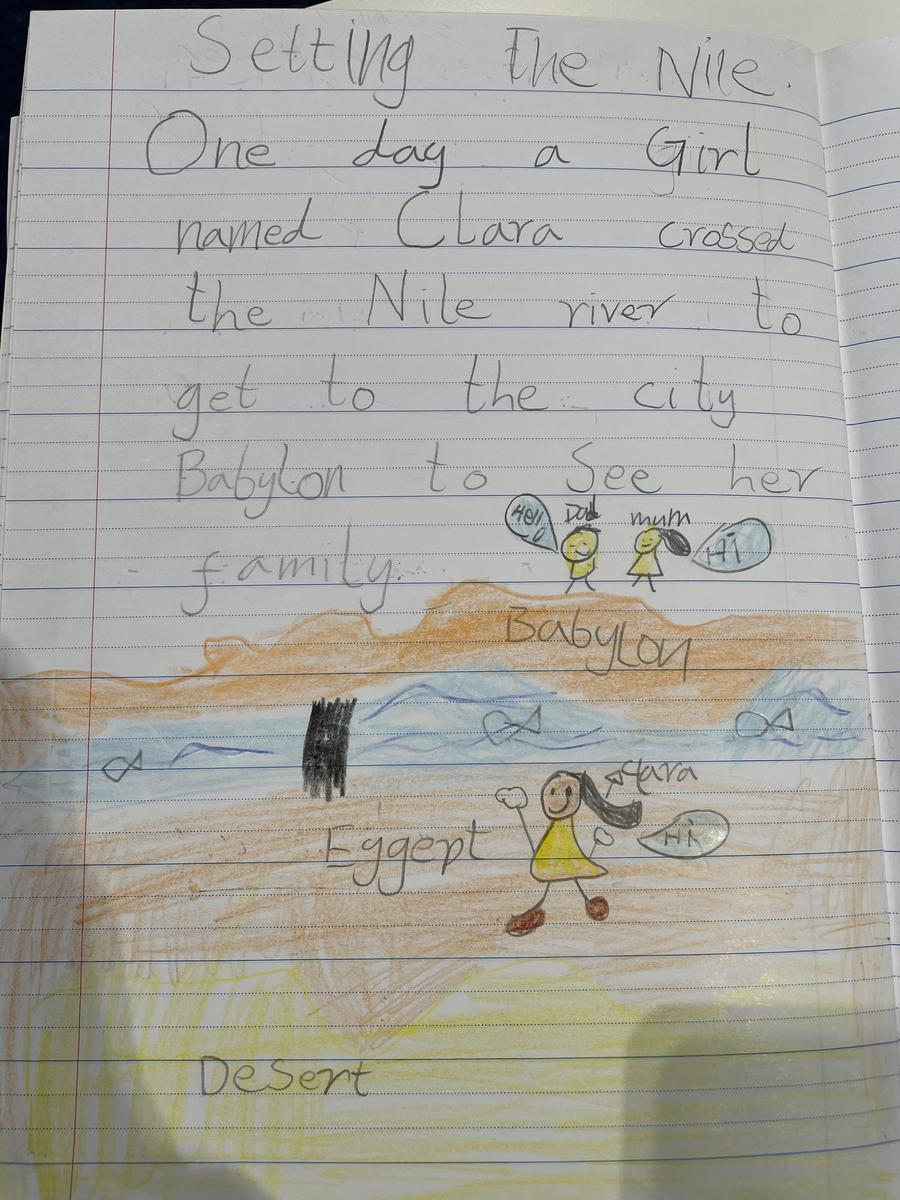 Setting The Nile.
One day a Girl
named Clara crossed
the Nile river to
get to the city
Babylon to See her
family.
Hello Dad mum Hi
Babylon
Clara
Eggept Hi
Desert